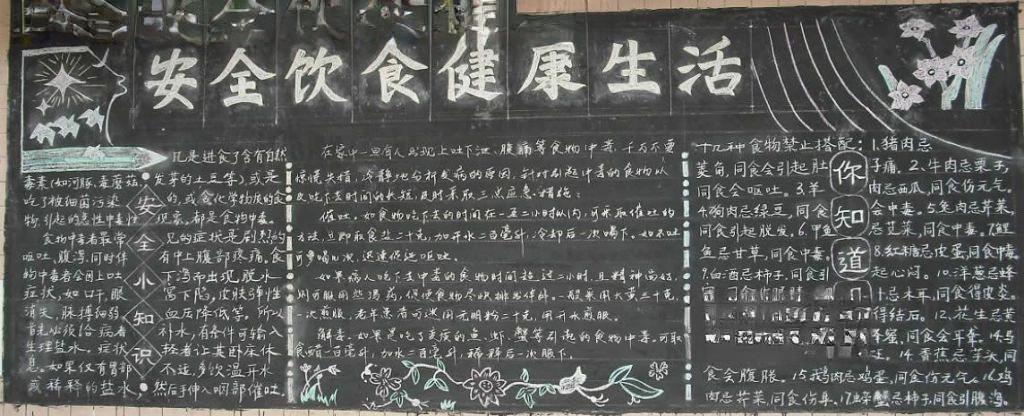 安全饮食健康生活
凡是进食了含有自然
毒素(如河豚、毒蘑菇、发芽的土豆等),或是
吃了被细菌污染的,或含化学物质的变
物,引起的急性中毒性况离,都是食物中毒。
食物中毒者最常见的症状是剧烈的
呕吐、腹泻,同时伴有中上腹部疼痛。食
物中毒者会因上吐下泻而出现脱水
症状,如口干、眼窝下陷、皮肤弹性
消失、脉搏细弱、血压降低等。所以
首先必须给病者补水,有条件可输入
生理盐水。症状轻者让其卧床休
息。如果仅有胃部不适,多饮温开水
或稀释的盐水,然后手伸入咽部催吐。
安全小知识
在家中一旦有人出现上吐下泻、腹痛等食物中毒,千万不要
惊慌失措,冷静地分析发病的原因,针对引起中毒的食物以
及吃下去的时间长短,及时采取三点应急措施:
催吐。如食物吃下去的时间在一至二小时以内,可采取催吐的
方法,立即取食盐二十克,加开水二百毫升,冷却后一次喝下。如不吐
可多喝几次,迅速促进呕吐。
如果病人吃下去中毒的食物时间超过二小时,且精神尚好,
则可服用些泻药,促使食物尽快排出体外。一般采用大黄三十克
一次煎服,老年患者可选用元明粉二十克,用开水煎服。
解毒。如果是吃了变质的鱼、虾、蟹等引起的食物中毒,可取
食醋一百毫升,加水二百毫升,稀释后一次服下。
你知道
十几种食物禁止搭配:1.猪肉忌
菱角,同食会引起肚子痛。2.牛肉忌栗子,
同食会呕吐。3.羊肉忌西瓜,同食伤元气。
4.狗肉忌绿豆,同食会中毒。5.兔肉忌芹菜,
同食引起脱发。6.甲鱼忌苋菜,同食中毒。7.鲤
鱼忌甘草,同食中毒。8.红糖忌皮蛋,同食中毒
9.白酒忌柿子,同食引起心闷。10.洋葱忌蜂
忌木耳,同食得皮炎。
得结石。12.花生忌黄
同食会耳聋。
14.香蕉忌芋头,同
食会腹胀。15.鹅肉忌鸡蛋,同食伤元气。16.鸡
肉忌芹菜,同食伤身。17.螃蟹忌柿子,同食引腹泻。